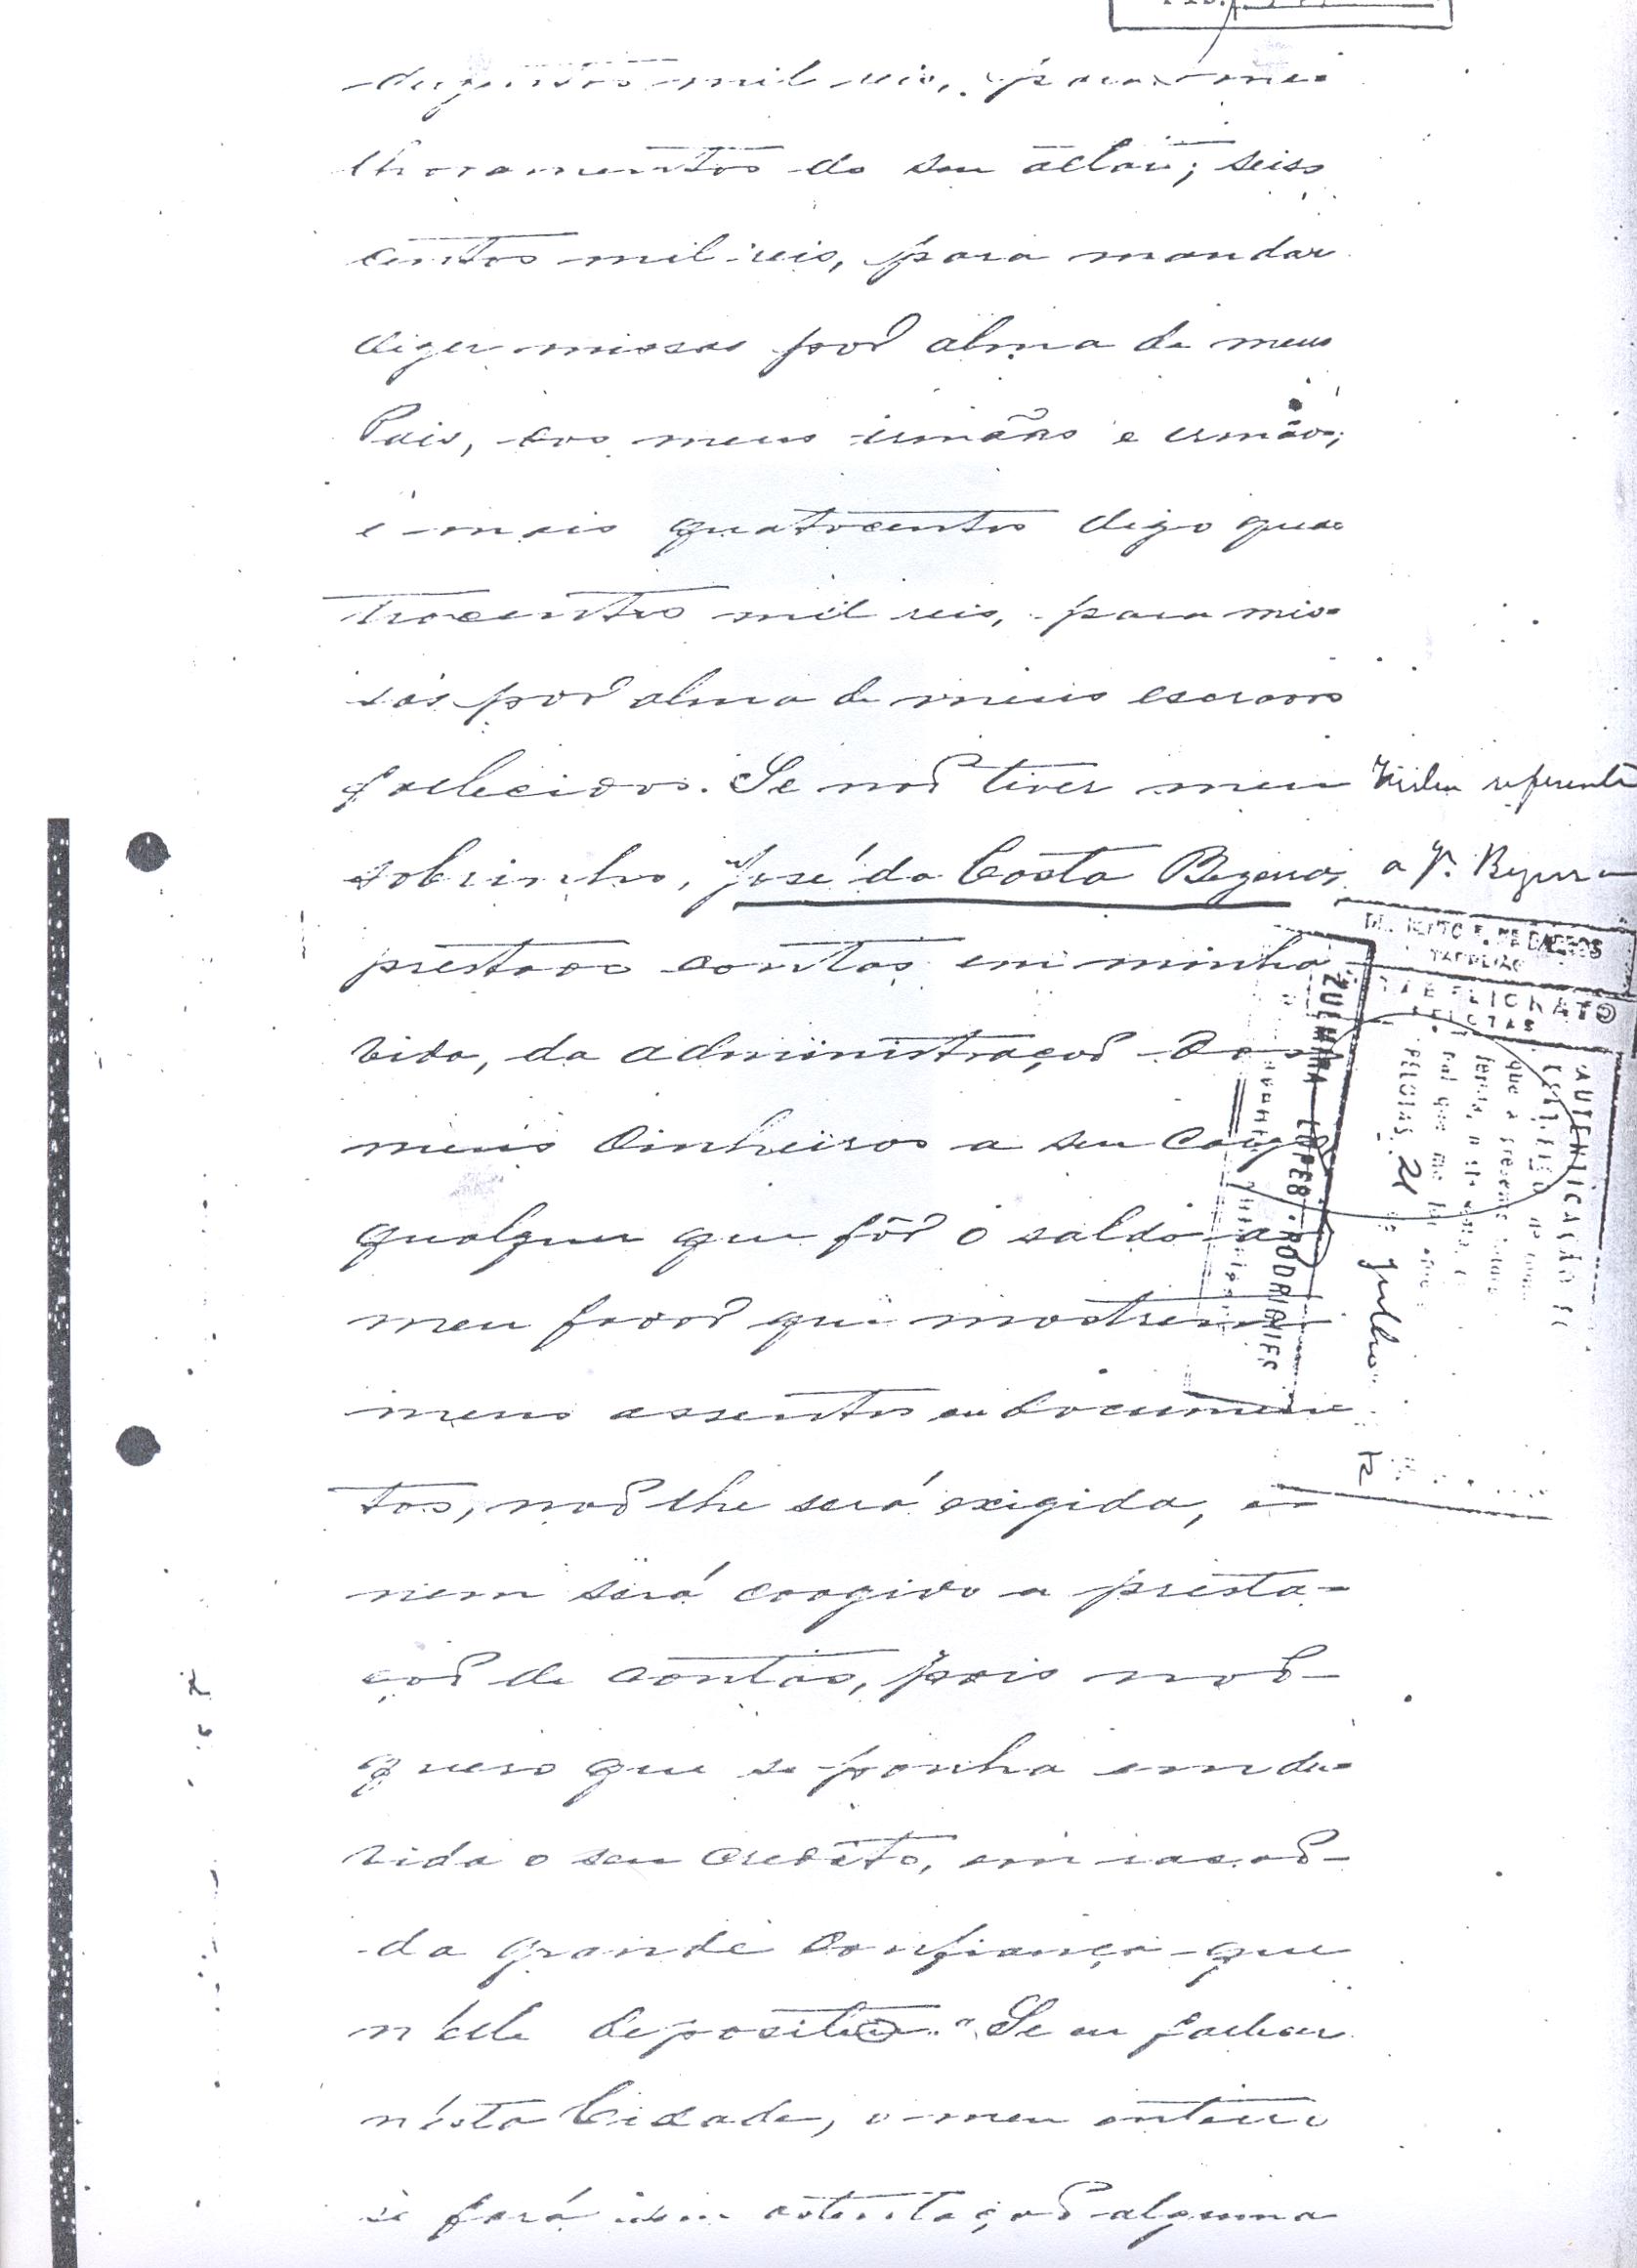 duzentos mil reis, para me-
lhoramentos do seu altar; seis-
centos mil reis, para mandar
dizer missas por alma de meus
Pais, dos meus irmãos e irmãs;
e mais quatrocentos digo qua-
trocentos mil reis, para mis-
sas por alma de meus escravos
fallecidos. Se não tiver meu
sobrinho, José da Costa Bezerra,
prestado contas em minha
vida, da administração dos
meus dinheiros a seu cargo
qualquer que fôr o saldo ao
meu favor que mostrem
meus assentos ou documen-
tos, não lhe será exigida,
nem será coagido a presta-
ção de contas, pois não
quero que se ponha em du-
vida o seu credito, em razão
da grande confiança que
n'elle deposito. Se eu fallecer
n'esta Cidade, o meu enterro
se fará sem ostentação alguma
referente
a
TABELIONATO
PELOTAS
AUTENTICAÇÃO
PELOTAS, 21 de julho
ZULMIRA LOPES RODRIGUES